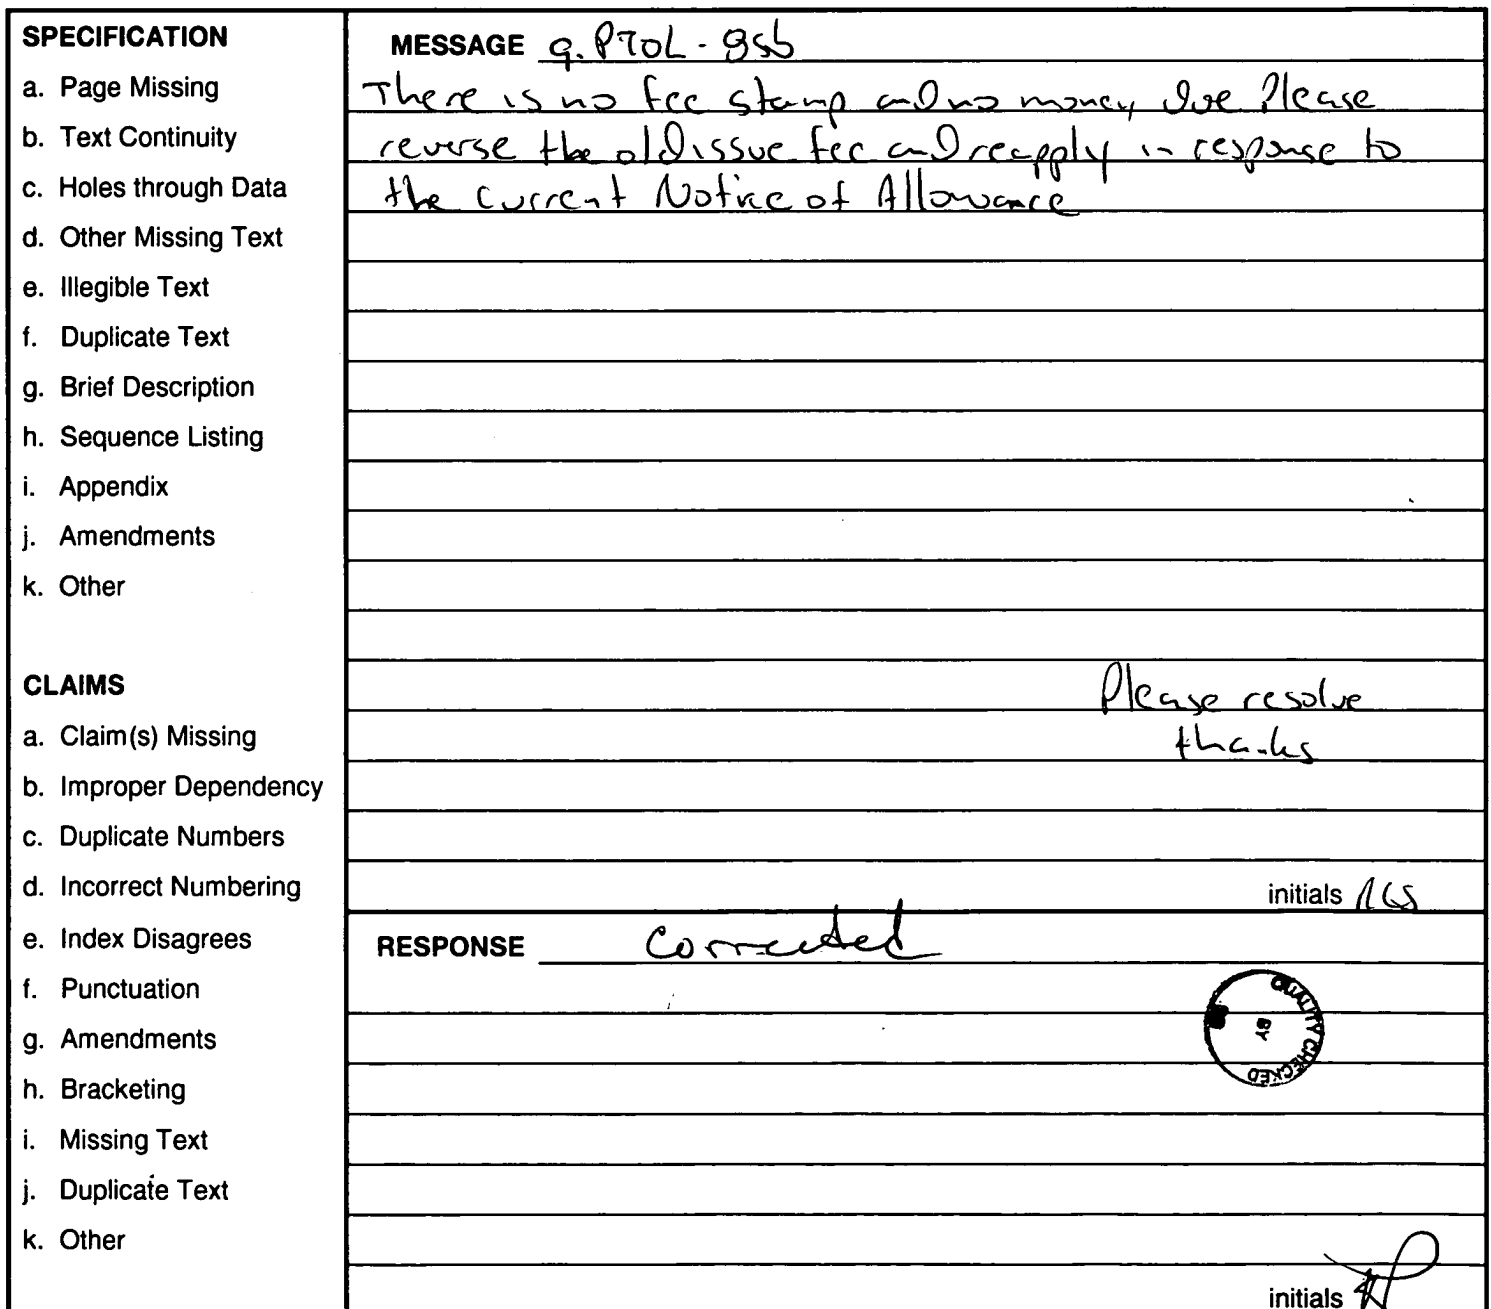 SPECIFICATION
a. Page Missing
b. Text Continuity
c. Holes through Data
d. Other Missing Text
e. Illegible Text
f. Duplicate Text
g. Brief Description
h. Sequence Listing
i. Appendix
j. Amendments
k. Other
CLAIMS
a. Claim(s) Missing
b. Improper Dependency
c. Duplicate Numbers
d. Incorrect Numbering
e. Index Disagrees
f. Punctuation
g. Amendments
h. Bracketing
i. Missing Text
j. Duplicate Text
k. Other
MESSAGE g. PTOL - 85b
There is no fee stamp and no money due Please
reverse the old issue fee and reapply in response to
the current Notice of Allowance
Please resolve
thanks
initials
RESPONSE Corrected
QUALITY CHECKED
BY
initials